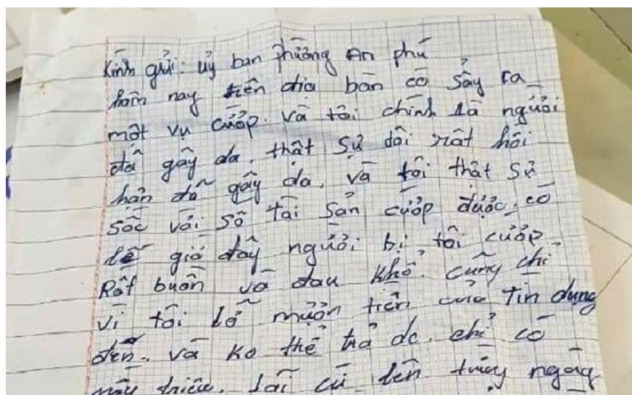 Kính gửi: Uỷ ban Phường An phú
hôm nay trên địa bàn có sảy ra
một vụ cướp. và tôi chính là người
đã gây da. thật sự tôi rất hối
hận đã gây da, và tôi thật sự
sốc với số tài sản cướp được. có
lẽ giờ đây người bị tôi cướp
Rất buồn và đau khổ. cũng chỉ
vì tôi lỡ mượn tiền của tín dụng
đen. và ko thể trả dc. chỉ có
mấy triệu. lãi cứ lên từng ngày